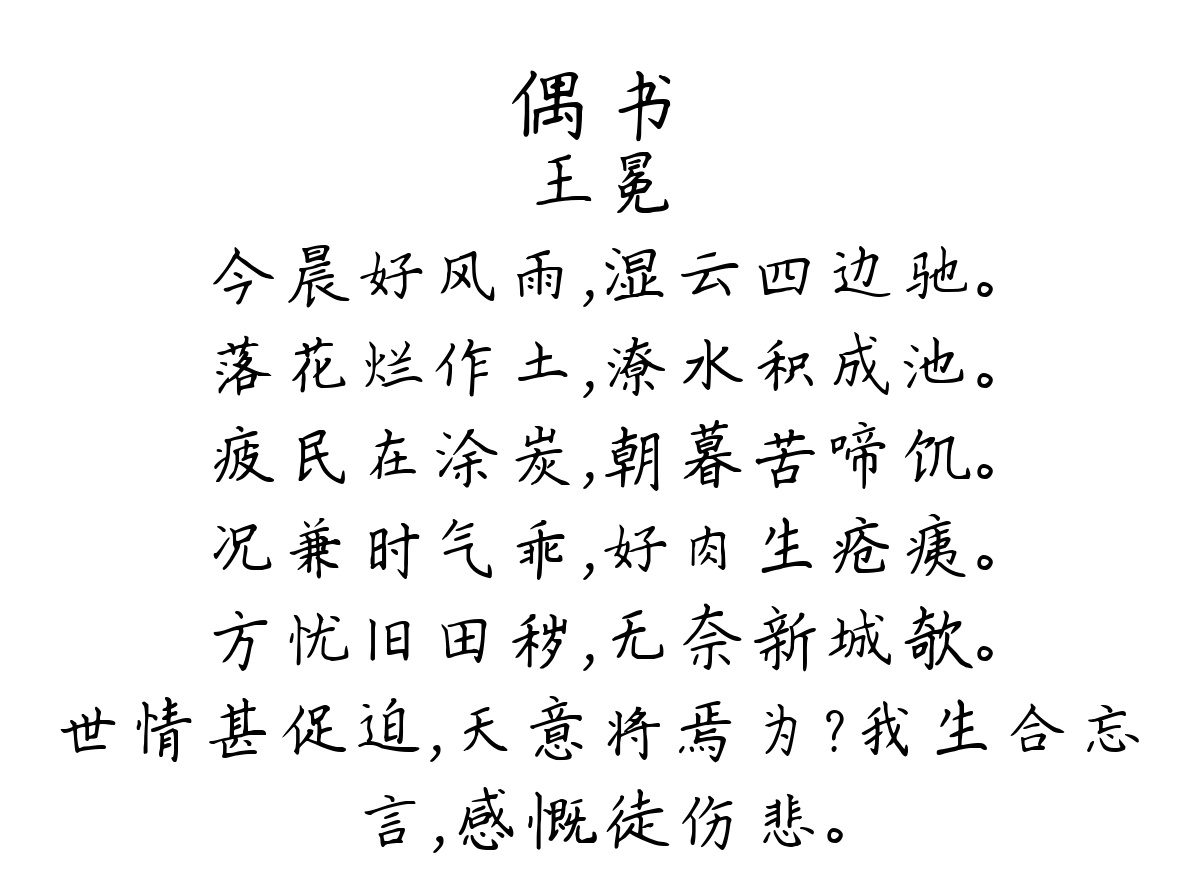 偶书
王冕
今晨好风雨,湿云四边驰。
落花烂作土,潦水积成池。
疲民在涂炭,朝暮苦啼饥。
况兼时气乖,好肉生疮痍。
方忧旧田秽,无奈新城欹。
世情甚促迫,天意将焉为?我生合忘
言,感慨徒伤悲。